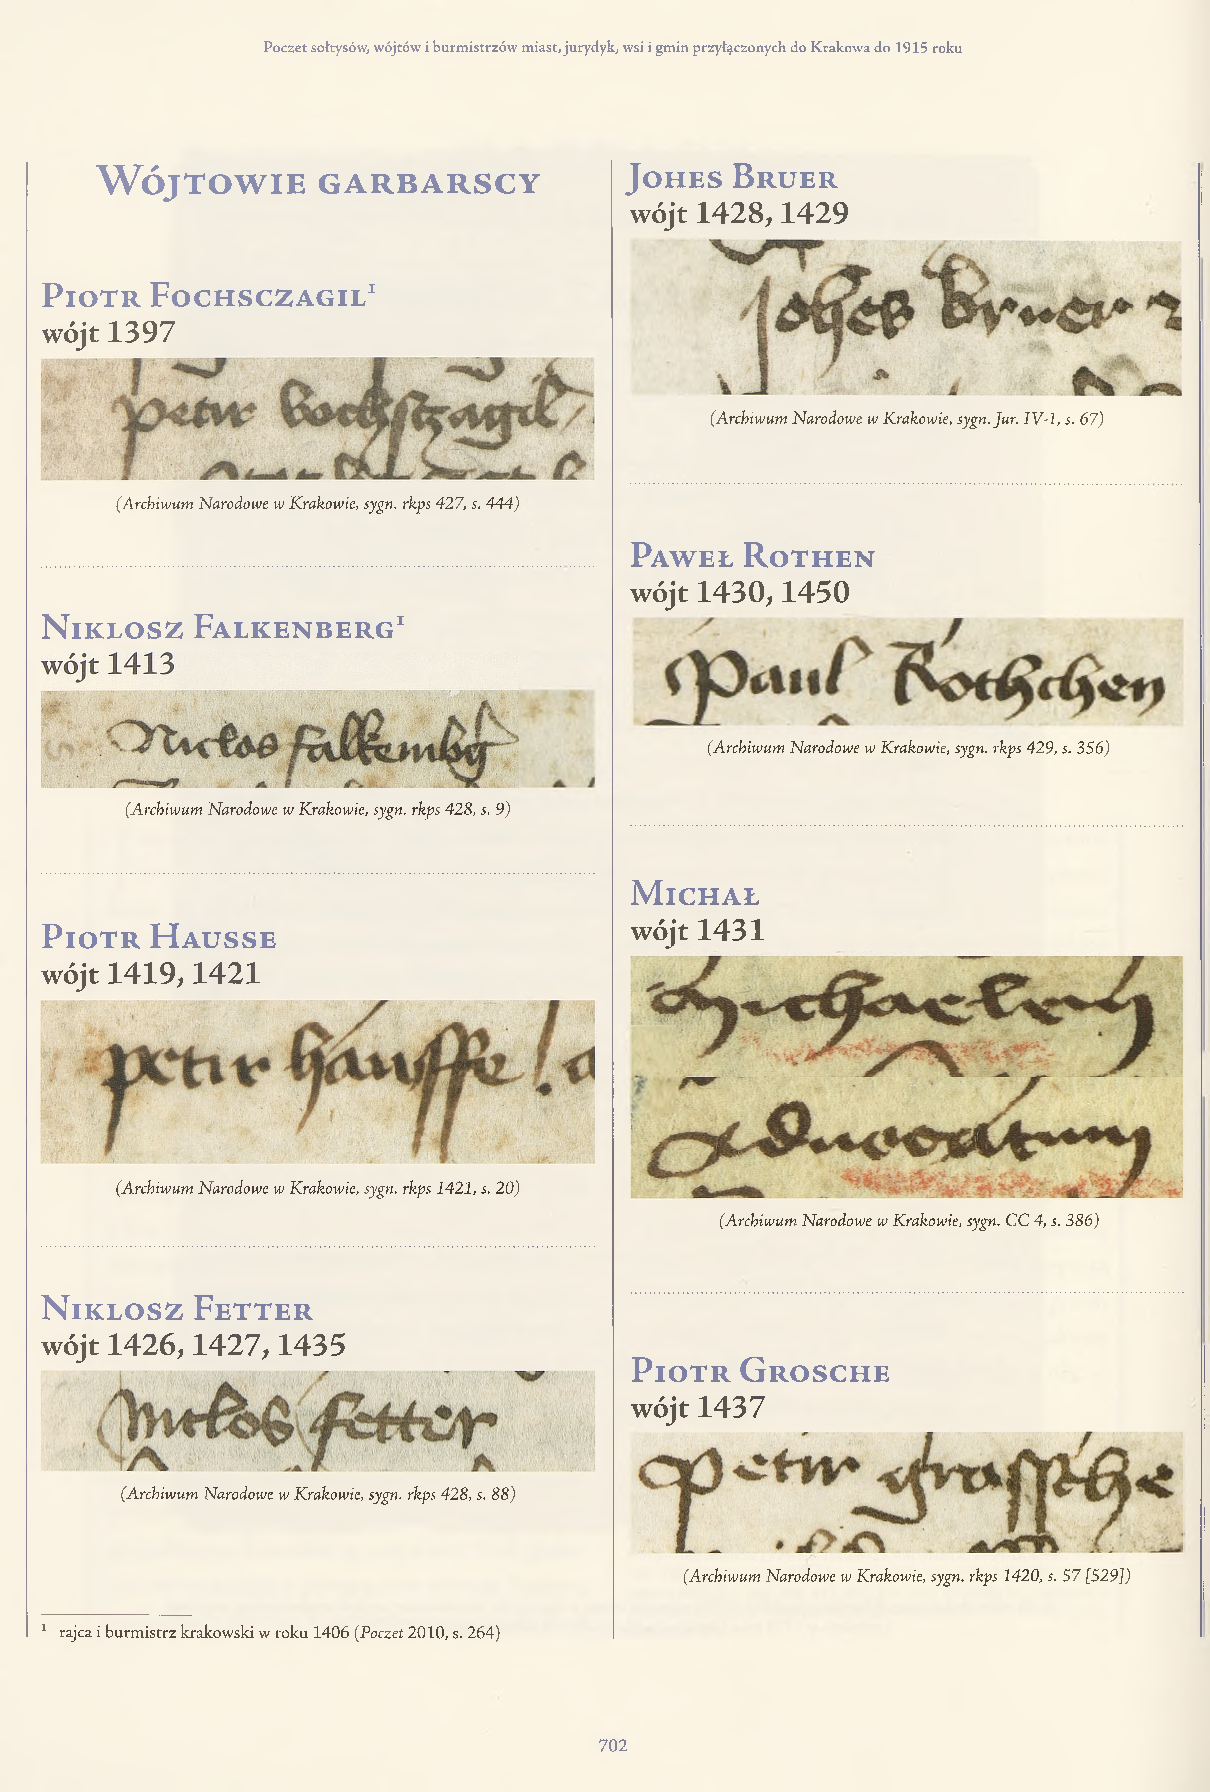 Poczet sołtysów, wójtów i burmistrzów miast, jurydyk, wsi i gmin przyłączonych do Krakowa do 1915 roku
Wójtowie garbarscy
Piotr Fochsczagil¹
wójt 1397
petir
(Archiwum Narodowe w Krakowie, sygn. rkps 427, s. 444)
Niklosz Falkenberg¹
wójt 1413
(Archiwum Narodowe w Krakowie, sygn. rkps 428, s. 9)
Piotr Hausse
wójt 1419, 1421
petir hausse
(Archiwum Narodowe w Krakowie, sygn. rkps 1421, s. 20)
Niklosz Fetter
wójt 1426, 1427, 1435
Niclos fetter
(Archiwum Narodowe w Krakowie, sygn. rkps 428, s. 88)
¹ rajca i burmistrz krakowski w roku 1406 (Poczet 2010, s. 264)
Johes Bruer
wójt 1428, 1429
Johes bruer
(Archiwum Narodowe w Krakowie, sygn. Jur. IV-1, s. 67)
Paweł Rothen
wójt 1430, 1450
Paul Rothchen
(Archiwum Narodowe w Krakowie, sygn. rkps 429, s. 356)
Michał
wójt 1431
Michaelem
Aduocatum
(Archiwum Narodowe w Krakowie, sygn. CC 4, s. 386)
Piotr Grosche
wójt 1437
Petir grossche
(Archiwum Narodowe w Krakowie, sygn. rkps 1420, s. 57 [529])
702